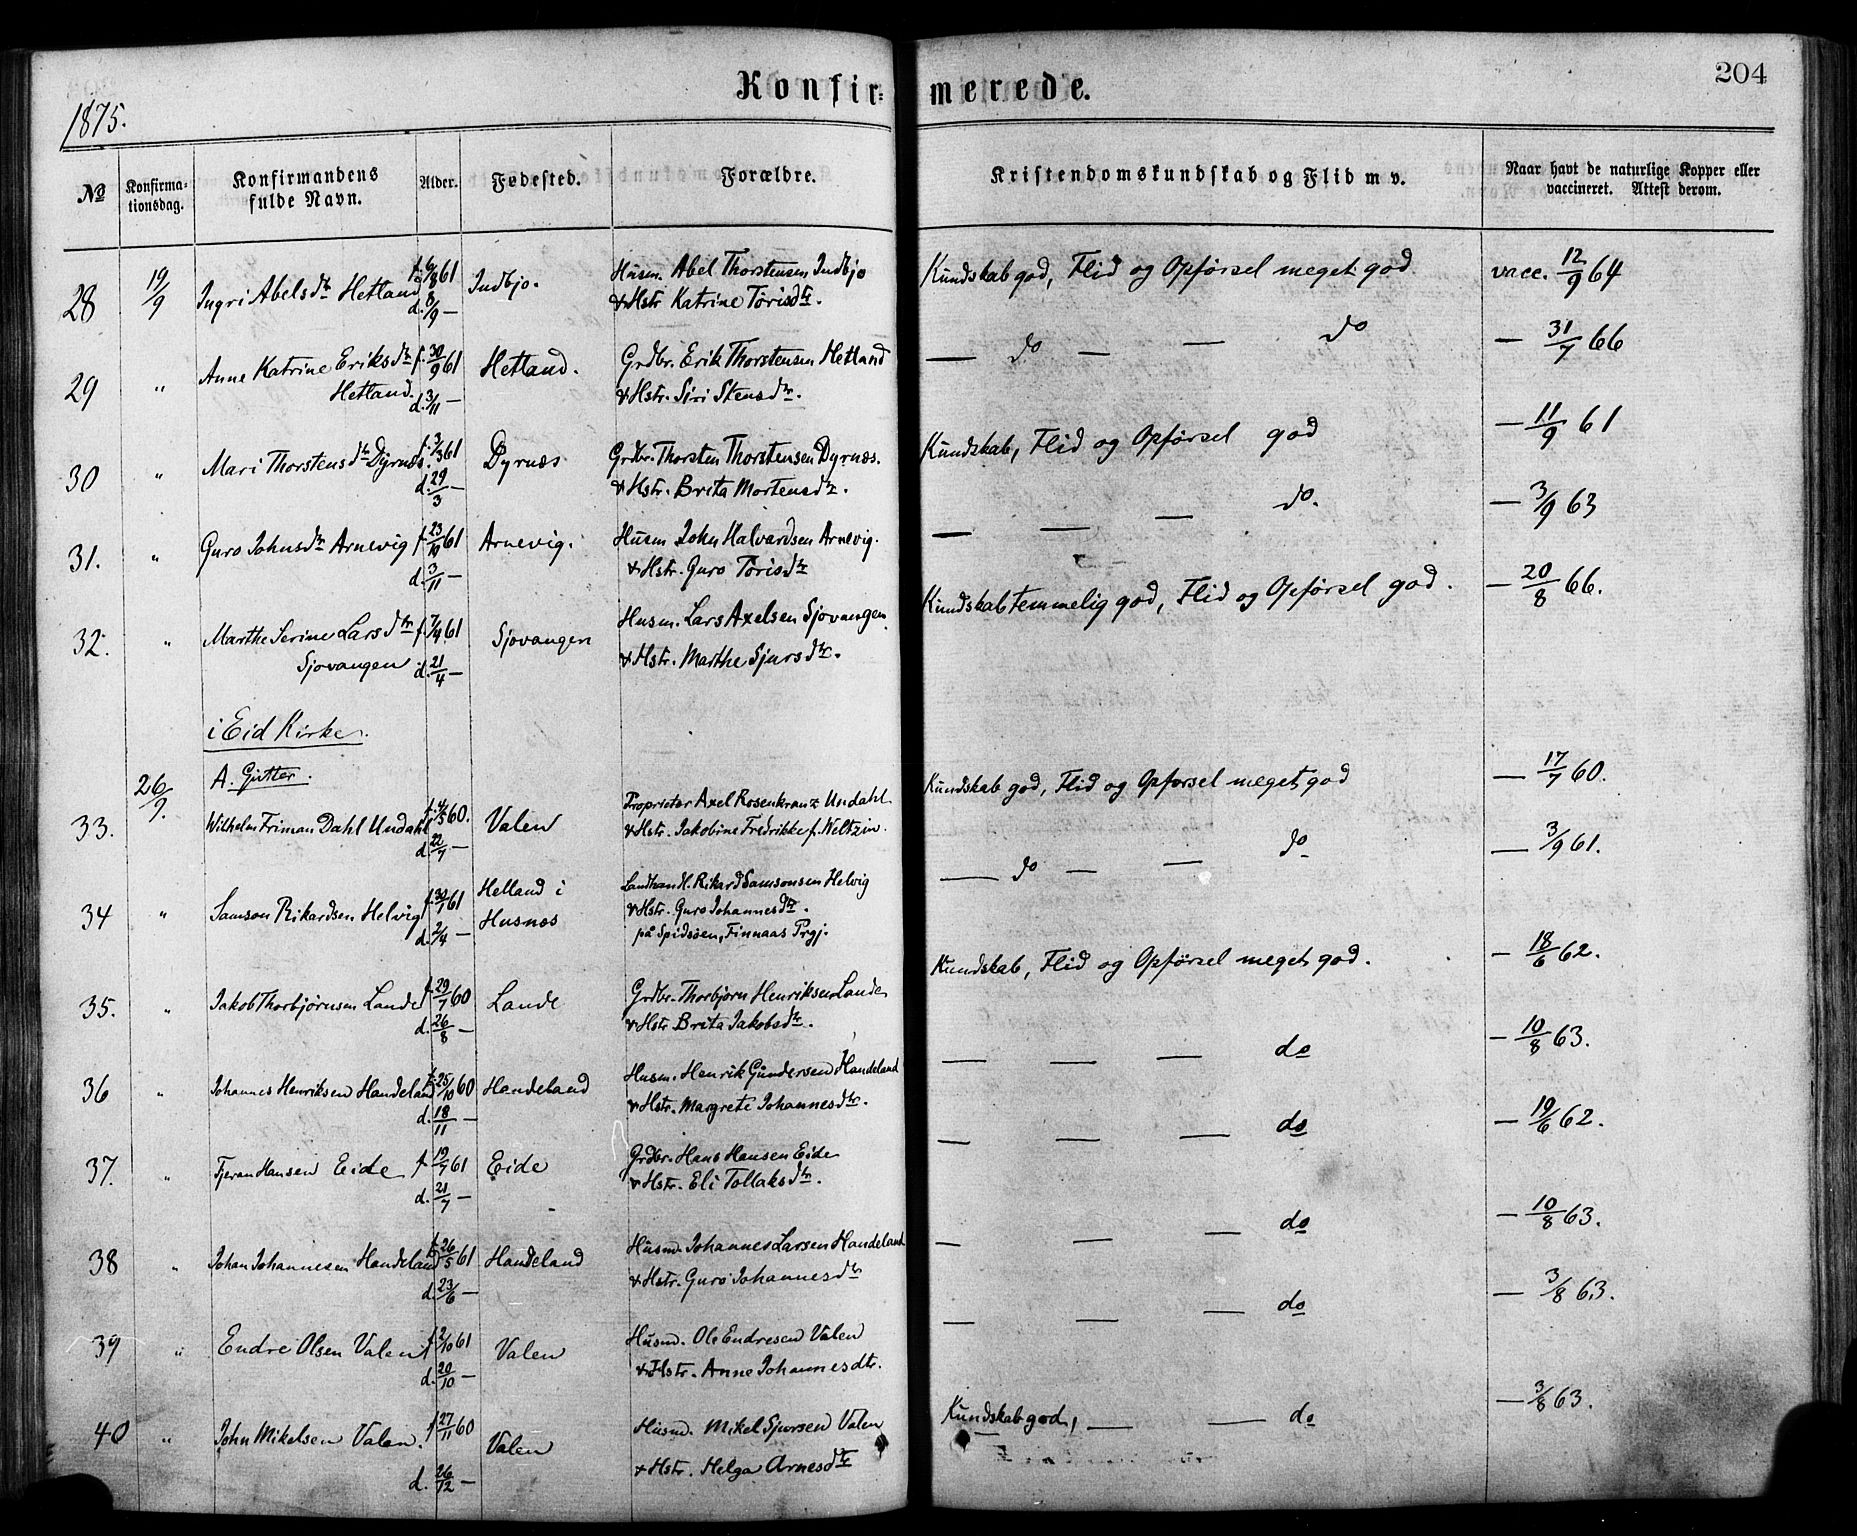 Konfirmerede.
204
1875.
No
Konfirmationsdag.
Konfirmandens fulde Navn.
Alder.
Fødested.
Forældre.
Kristendomskundskab og Flid m v.
Naar havt de naturlige Kopper eller vaccineret. Attest derom.
28 19/9 Ingri Abelsdtr Hetland f. 6/8 61 d. 8/9 — Indbjo. Husm. Abel Thorstensen Indbjo
& Hstr Katrine Torisdtr. Kundskab god, Flid og Opførsel meget god vacc. 12/9 64
29 " Anne Katrine Eriksdtr f. 30/9 61 Hetland. Grdbr. Erik Thorstensen Hetland — do — — do — 31/7 66
Hetland. d. 3/11 — & Hstr. Siri Stensdtr.
30 " Mari Thorstensdtr Dyrnæs. f. 3/3 61 Dyrnæs Grdbr. Thorsten Thorstensen Dyrnæs. Kundskab, Flid og Opførsel god — 11/9 61
d. 29/3 — & Hstr. Brita Mortensdtr.
31. " Guro Johnsdtr Arnevig f. 23/10 61 Arnevig. Husm John Halvardsen Arnevig. — — — do. — 3/9 63
d. 3/11 — & Hstr. Guro Torisdtr
32. " Marthe Serine Larsdtr f. 7/4 61 Sjovangen Husm. Lars Axelsen Sjovangen Kundskab temmelig god, Flid og Opførsel god. — 20/8 66.
Sjovangen d. 21/4 — & Hstr. Marthe Sjursdtr.
i Eid Kirke.
A. Gutter.
33. 26/9. Wilhelm Friman Dahl Undahl f. 4/5 60. Valen Proprietær Axel Rosenkranz Undahl Kundskab god, Flid og Opførsel meget god — 17/7 60.
d. 22/7 — & Hstr. Jakobine Fredrikke f. Weltzin.
34 " Samson Rikardsen Helvig f. 30/1 61 Helland i Landhand. Rikard Samsonsen Helvig — do — — do — 3/9 61.
d. 2/4 — Husnæs & Hstr. Guro Johannesdtr.
på Spidsøen, Finnaas Prgj.
35. " Jakob Thorbjørnsen Lande f. 29/7 60 Lande Grdbr. Thorbjørn Henriksen Lande Kundskab, Flid og Opførsel meget god. — 18/6 62.
d. 26/8 — & Hstr Brita Jakobsdtr.
36 " Johannes Henriksen Handeland f. 25/10 60 Handeland Husm. Henrik Gundersen Handeland — — — do — 10/8 63.
d. 18/11 — & Hstr. Margrete Johannesdtr.
37. " Tjeran Hansen Eide f. 19/7 61 Eide Grdbr. Hans Hansen Eide — — — do — 19/6 62.
d. 21/7 — & Hstr. Eli Tollaksdtr.
38 " Johan Johannesen Handeland f. 26/5 61 Handeland Husmd. Johannes Larsen Handeland — — — do — 10/8 63.
d. 23/6 — & Hstr. Guro Johannesdtr
39 " Endre Olsen Valen f. 2/10 61 Valen Husmd. Ole Endresen Valen — — — do — 3/8 63.
d. 20/10 — & Hstr. Anne Johannesdtr.
40 " John Mikelsen Valen. f 27/11 60 Valen Husmd. Mikel Sjursen Valen Kundskab god, — — do — 3/8 63.
d. 26/12 — & Hstr. Helga Arnesdtr